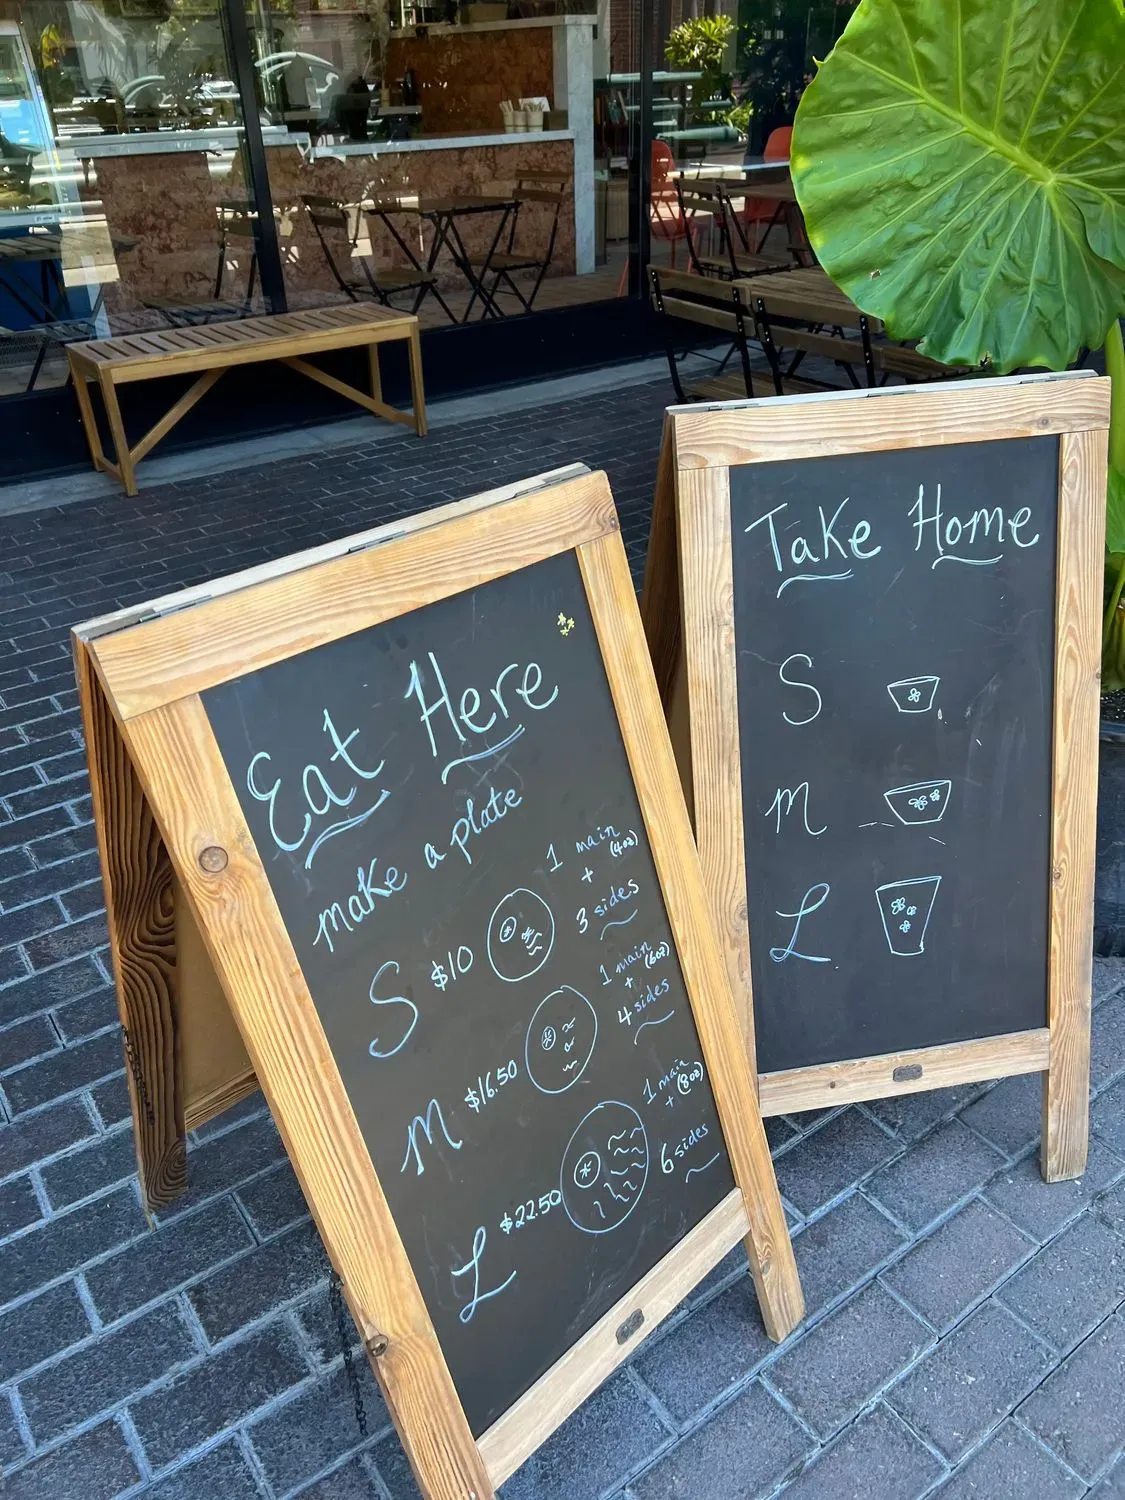 Eat Here
make a plate
S $10 1 main (4oz)
+
3 sides
M $16.50 1 main (6oz)
+
4 sides
L $22.50 1 main (8oz)
+
6 sides
Take Home
S
M
L